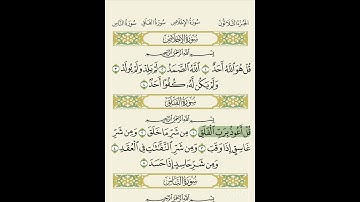 الجزء الثلاثون سورة الإخلاص سورة الفلق سورة الناس
سورة الإخلاص
بِسْمِ اللَّهِ الرَّحْمَٰنِ الرَّحِيمِ
قُلْ هُوَ اللَّهُ أَحَدٌ ١ اللَّهُ الصَّمَدُ ٢ لَمْ يَلِدْ وَلَمْ يُولَدْ ٣
وَلَمْ يَكُن لَّهُ كُفُوًا أَحَدٌ ٤
سورة الفلق
بِسْمِ اللَّهِ الرَّحْمَٰنِ الرَّحِيمِ
قُلْ أَعُوذُ بِرَبِّ الْفَلَقِ ١ مِن شَرِّ مَا خَلَقَ ٢ وَمِن شَرِّ
غَاسِقٍ إِذَا وَقَبَ ٣ وَمِن شَرِّ النَّفَّاثَاتِ فِي الْعُقَدِ ٤
وَمِن شَرِّ حَاسِدٍ إِذَا حَسَدَ ٥
سورة الناس
بِسْمِ اللَّهِ الرَّحْمَٰنِ الرَّحِيمِ